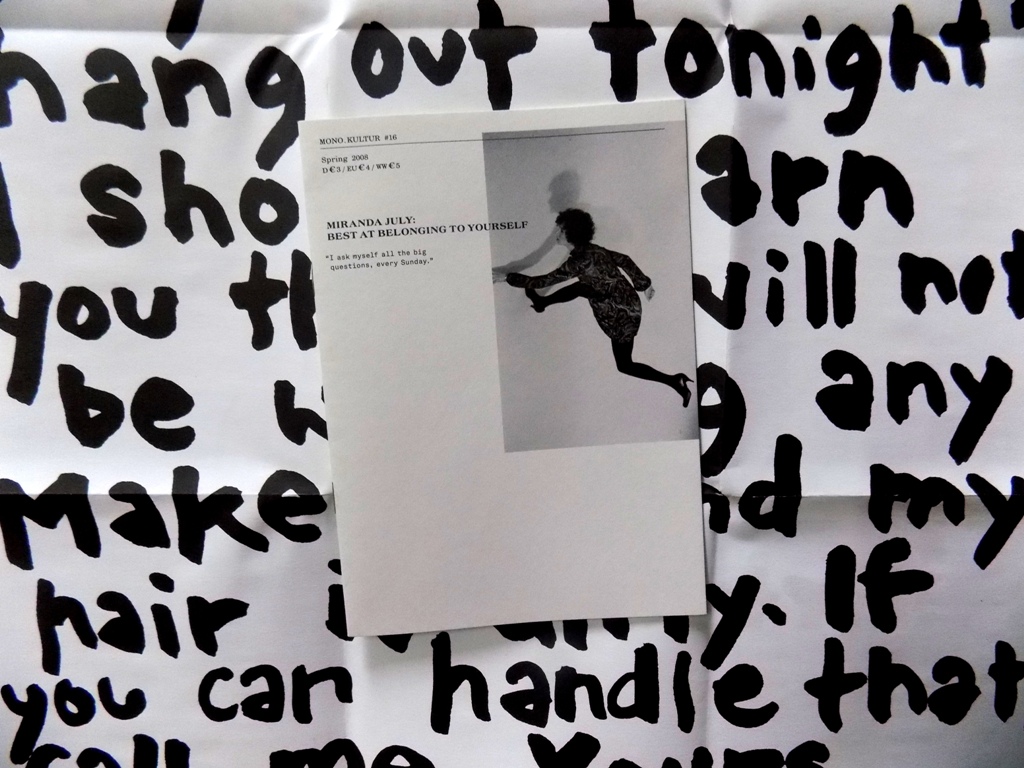 hang out tonight"
I sho arn
you th will not
be any
make nd my
hair If
you can handle that
call me. Yours
MONO.KULTUR #16
Spring 2008
D€3 / EU€4 / WW€5
MIRANDA JULY:
BEST AT BELONGING TO YOURSELF
"I ask myself all the big
questions, every Sunday."